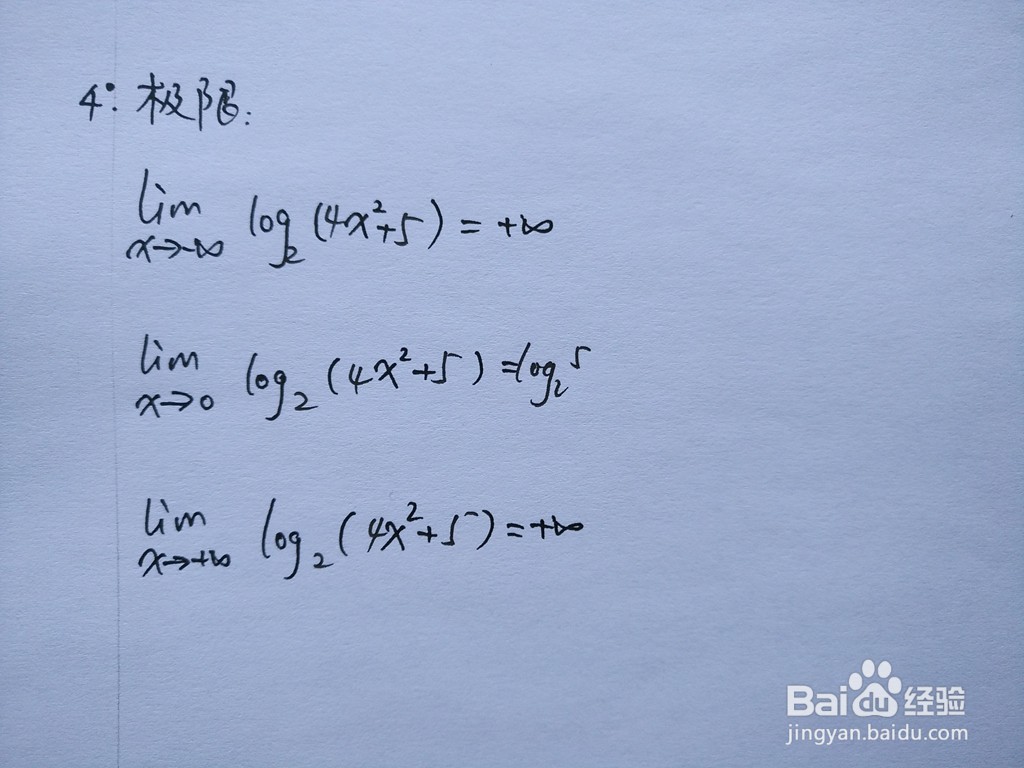 4°: 极限:
lim x→-∞ log₂(4x²+5) = +∞
lim x→0 log₂(4x²+5) = log₂5
lim x→+∞ log₂(4x²+5) = +∞
Baidu 经验
jingyan.baidu.com